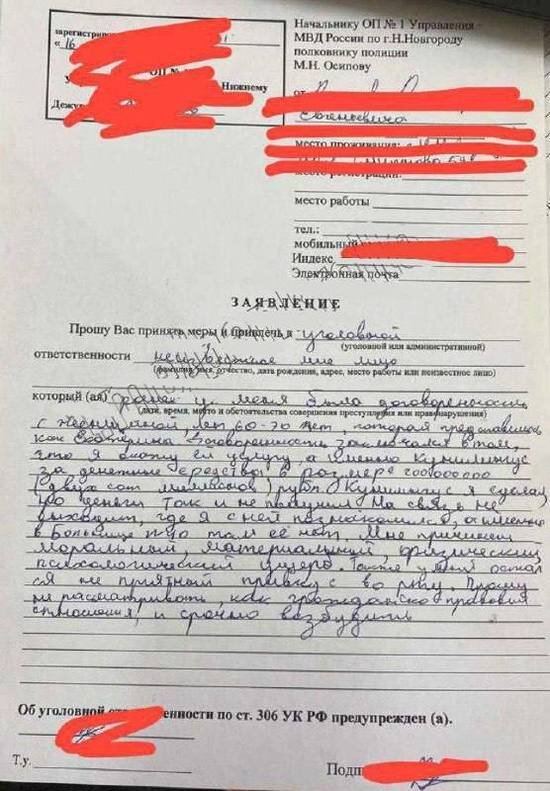 зарегистриро
«16
ОП №
Нижнему
Дежу
Начальнику ОП № 1 Управления
МВД России по г.Н.Новгороду
полковнику полиции
М.Н. Осипову
от
Евгеньевича
место проживания:
место регистрации:
место работы
тел.:
мобильный
Индекс
Электронная почта
ЗАЯВЛЕНИЕ
Прошу Вас принять меры и привлечь к уголовной
(уголовной или административной)
ответственности неизвестное мне лицо
(фамилия, имя, отчество, дата рождения, адрес, место работы или неизвестное лицо)
который (ая) у меня была договоренность
(дата, время, место и обстоятельства совершения преступления или правонарушения)
с женщиной, лет 60-70 лет, которая представилась
как Екатерина. Договоренность заключался в том,
что я окажу ей услугу, а именно Кунилингус
за денежные средства в размере 200000000
(двух сот миллионов) рубл. Кунилингус я сделал,
но деньги так и не получил. На связь не
выходит, где я с ней познакомился, а именно
в Больнице №40 там её нет. Мне причинен
моральный, материальный, физический,
психологический ущерб. Также у меня остал
ся не приятный привкус во рту. Прошу
не рассматривать как гражданско правовия
отношения, и срочно возбудить
Об уголовной ответственности по ст. 306 УК РФ предупрежден (а).
Т.у.
Подп